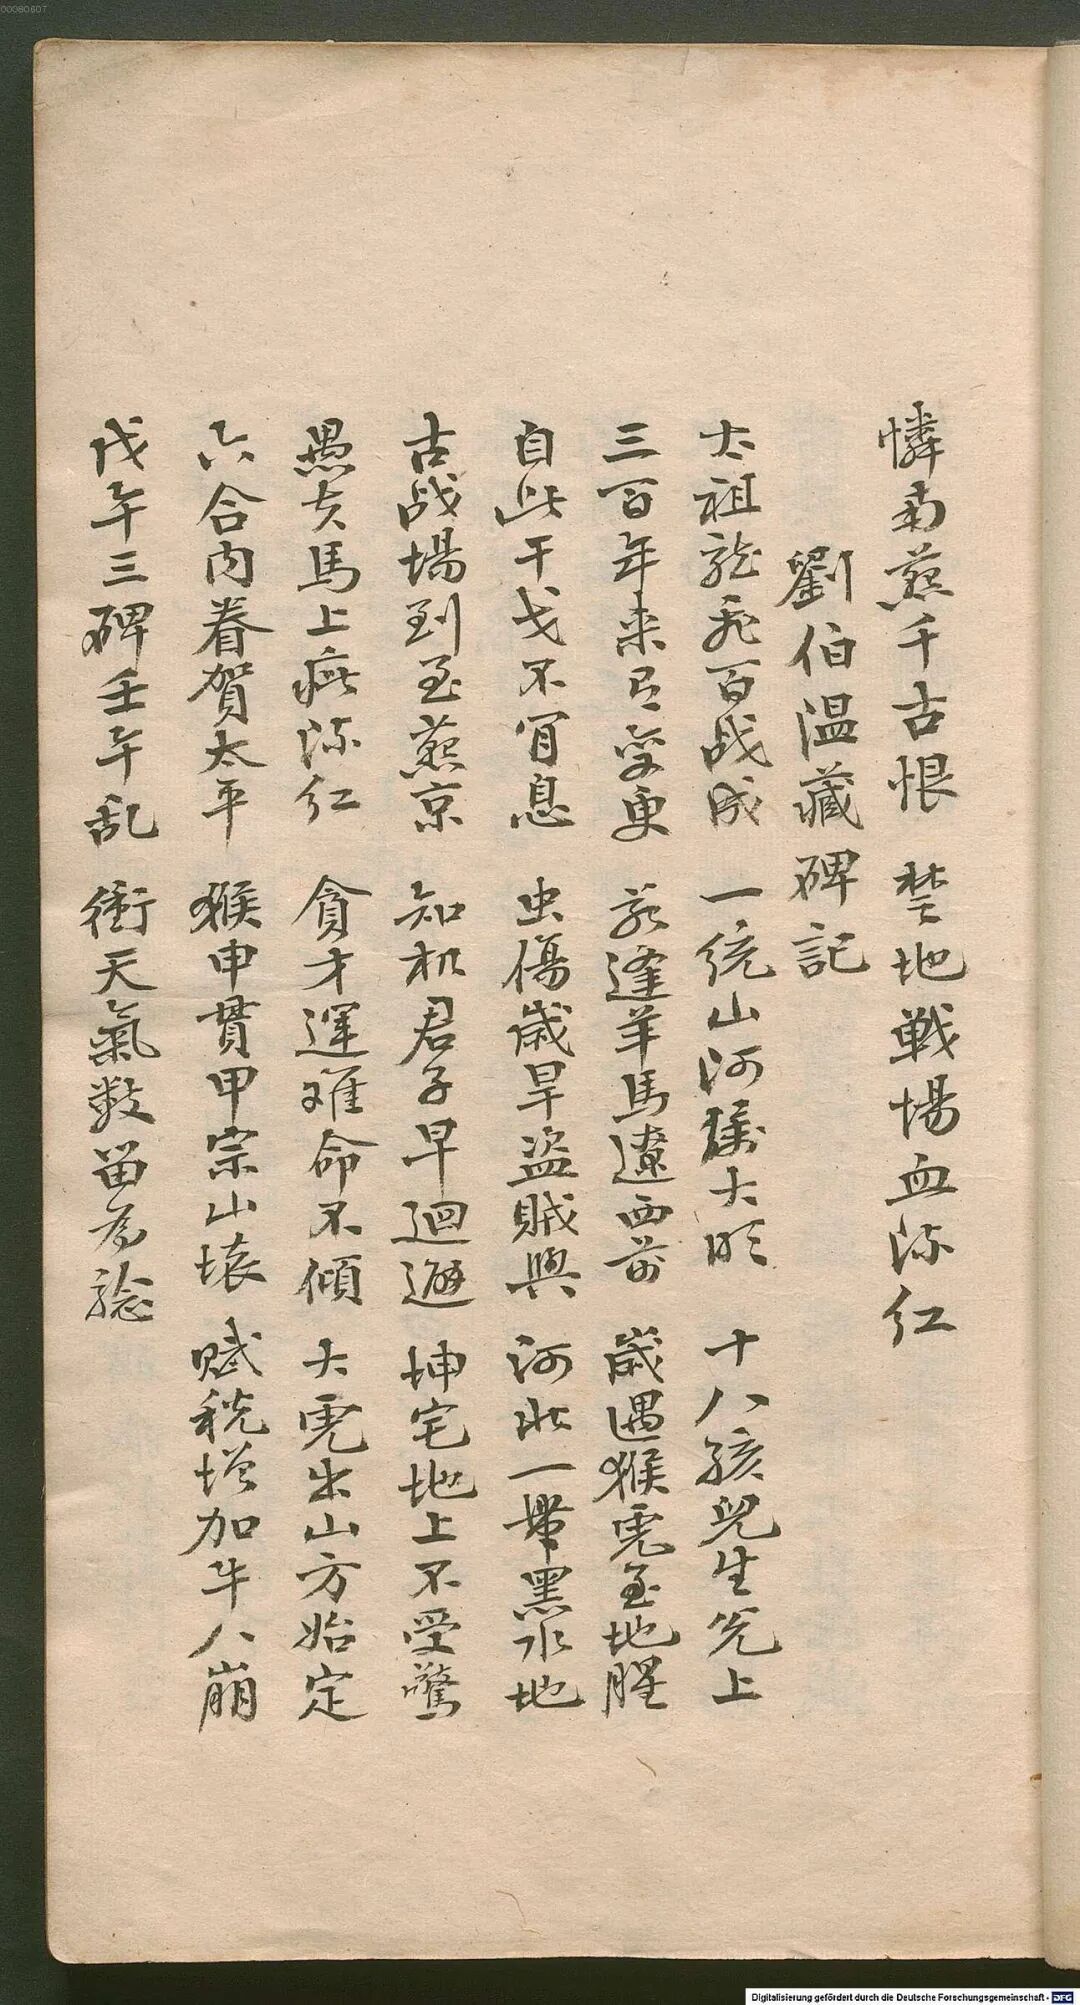 00080607
憐南燕千古恨 楚地戦場血流红
劉伯温藏碑記
太祖龍飛百战成 一统山河属大明 十八孩兒生兑上
三百年来有变更 若逢羊馬遼西前 歲遇猴虎至地腥
自此干戈不肯息 虫傷歲旱盗賊興 河北一帶黑水地
古战場到至燕京 知机君子早迴避 坤宅地上不受驚
愚夫馬上疵流红 貪才運难命不傾 大虎出山方始定
六合内眷賀太平 猴申貫甲宗山壊 赋税增加牛八崩
戊午三碑壬午乱 衝天氣数留為
Digitalisierung gefördert durch die Deutsche Forschungsgemeinschaft - DFG